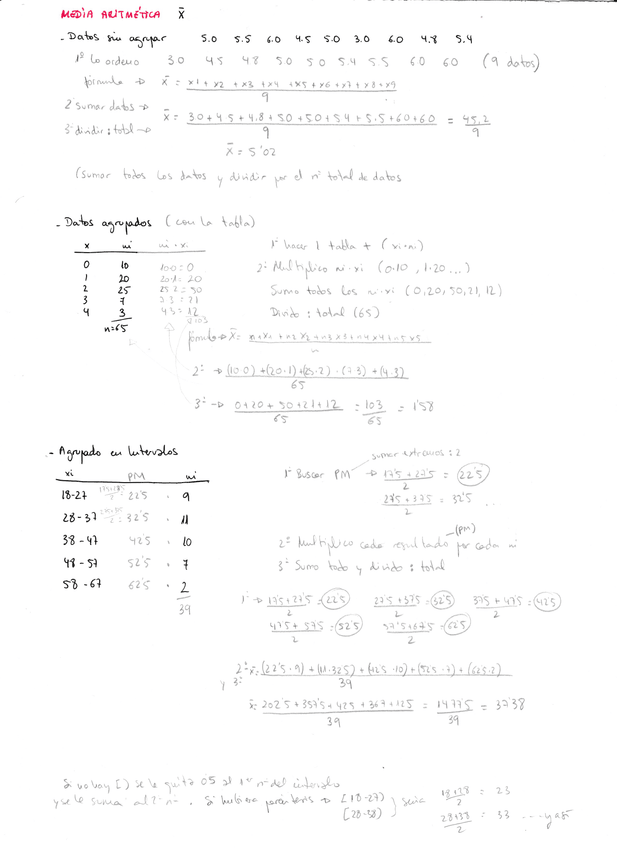 MEDIA ARITMÉTICA X̄
- Datos sin agrupar 5.0 5.5 6.0 4.5 5.0 3.0 6.0 4.8 5.4
1º Lo ordeno 3.0 4.5 4.8 5.0 5.0 5.4 5.5 6.0 6.0 (9 datos)
fórmula → x̄ = x1 + x2 + x3 + x4 + x5 + x6 + x7 + x8 + x9
9
2 sumar datos →
x̄ = 3.0 + 4.5 + 4.8 + 5.0 + 5.0 + 5.4 + 5.5 + 6.0 + 6.0 = 45,2
9 9
3 dividir : total →
x̄ = 5'02
(Sumar todos los datos y dividir por el nº total de datos
- Datos agrupados (con la tabla)
x ni ni · x.
0 10 10·0 = 0
1 20 20·1 = 20
2 25 25·2 = 50
3 7 7·3 = 21
4 3 4·3 = 12
n=65 103
1º hacer 1 tabla + (xi·ni)
2º Multiplico ni·xi (0·10, 1·20...)
Sumo todos los n·xi (0,20,50,21,12)
Divido : total (65)
fórmula → x̄ = n1x1 + n2x2 + n3x3 + n4x4 + n5x5
n
2º → (10·0) + (20·1) + (25·2) · (7·3) + (4·3)
65
3º → 0+20+50+21+12 = 103 = 1'58
65 65
- Agrupado en Intervalos
xi PM ni
18-27 17'5+27'5 = 22'5 · 9
2
28-37 = 32'5 · 11
38-47 42'5 · 10
48-57 52'5 · 7
58-67 62'5 · 2
39
sumar extremos : 2
1º Buscar PM → 17'5 + 27'5 = 22'5
2
27'5 + 37'5 = 32'5 ...
2
(PM)
2º Multiplico cada resultado por cada ni
3º Sumo todo y divido : total
1º → 17'5+27'5 = 22'5 27'5+37'5 = 32'5 37'5+47'5 = 42'5
2 2 2
47'5 + 57'5 = 52'5 57'5+67'5 = 62'5
2 2
2º x̄ = (22'5·9) + (11·32'5) + (42'5·10) + (52'5·7) + (62'5·2)
y 3º 39
x̄ = 202'5 + 357'5 + 425 + 367 + 125 = 1477'5 = 37'38
39 39
Si no hay [) se le quita 0'5 al 1er nº del intervalo
y se le suma al 2º nº. Si hubiera paréntesis → [18-27) sería 18+28 = 23
[28-38) 2
28+38 = 33 ... y así
2